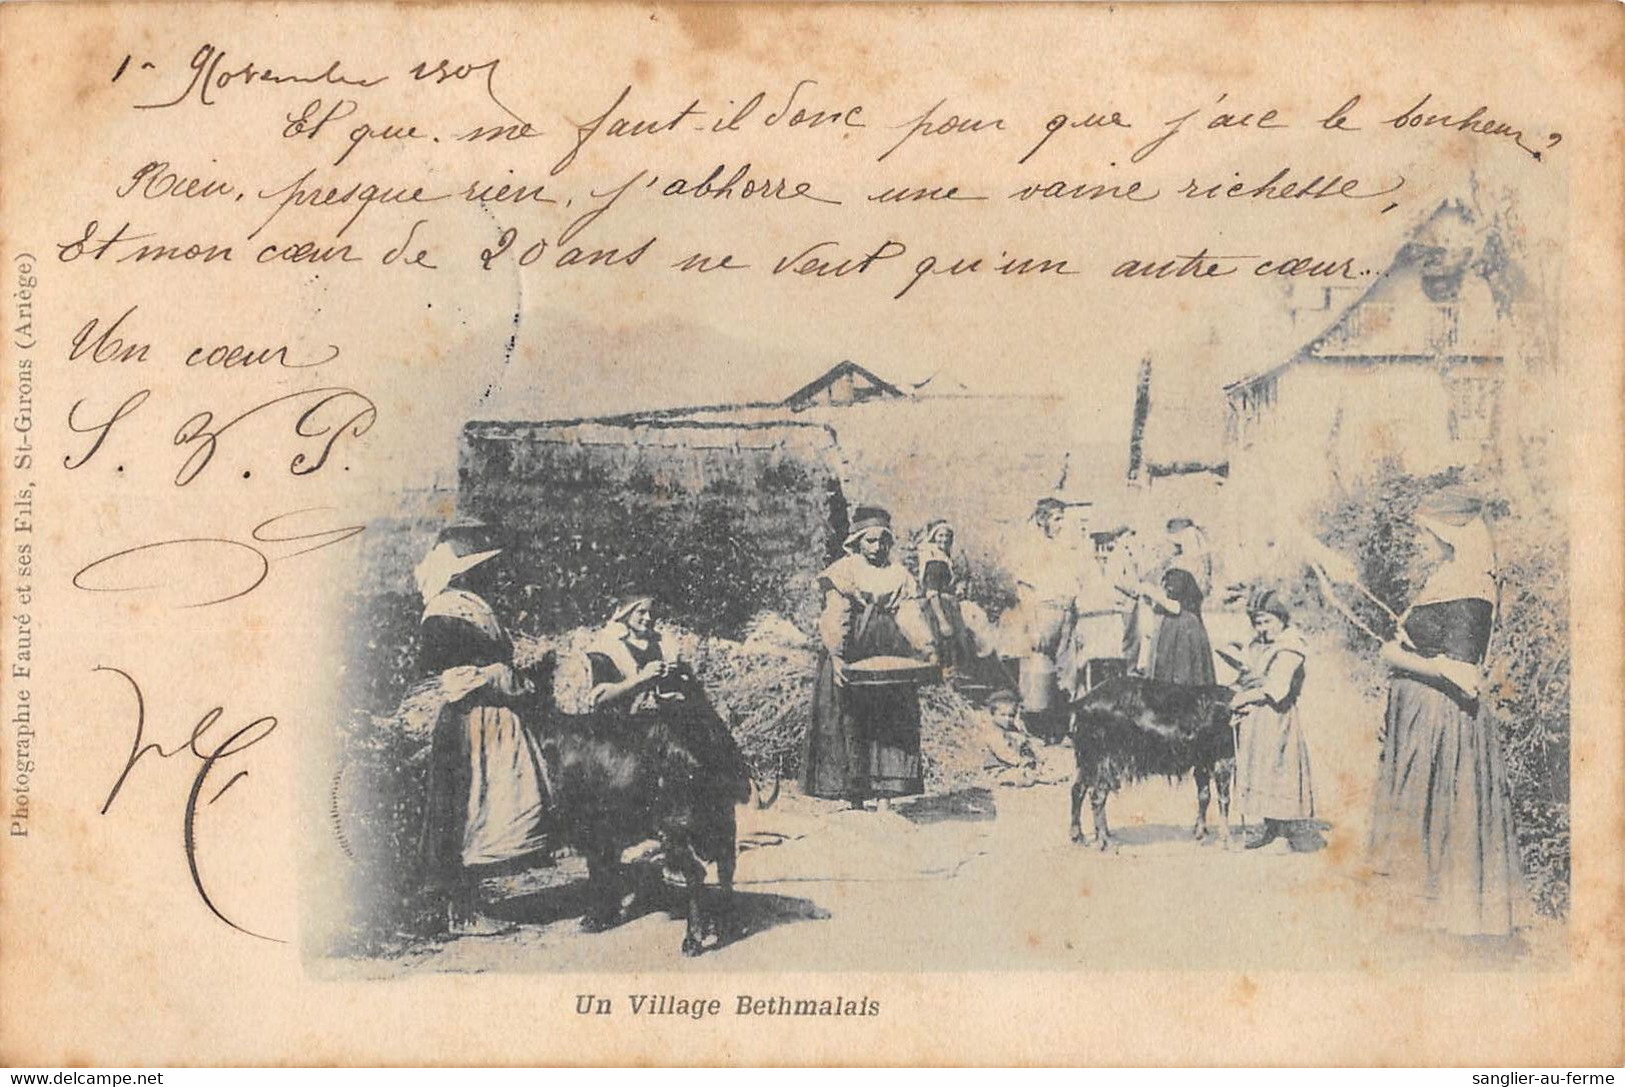 1er Novembre 1901
Et que me faut-il donc pour que j'aie le bonheur?
Rien, presque rien, j'abhorre une vaine richesse,
Et mon cœur de 20 ans ne veut qu'un autre cœur...
Un cœur
S. V. P.
Photographie Fauré et ses Fils, St-Girons (Ariège)
Un Village Bethmalais
sanglier-au-ferme